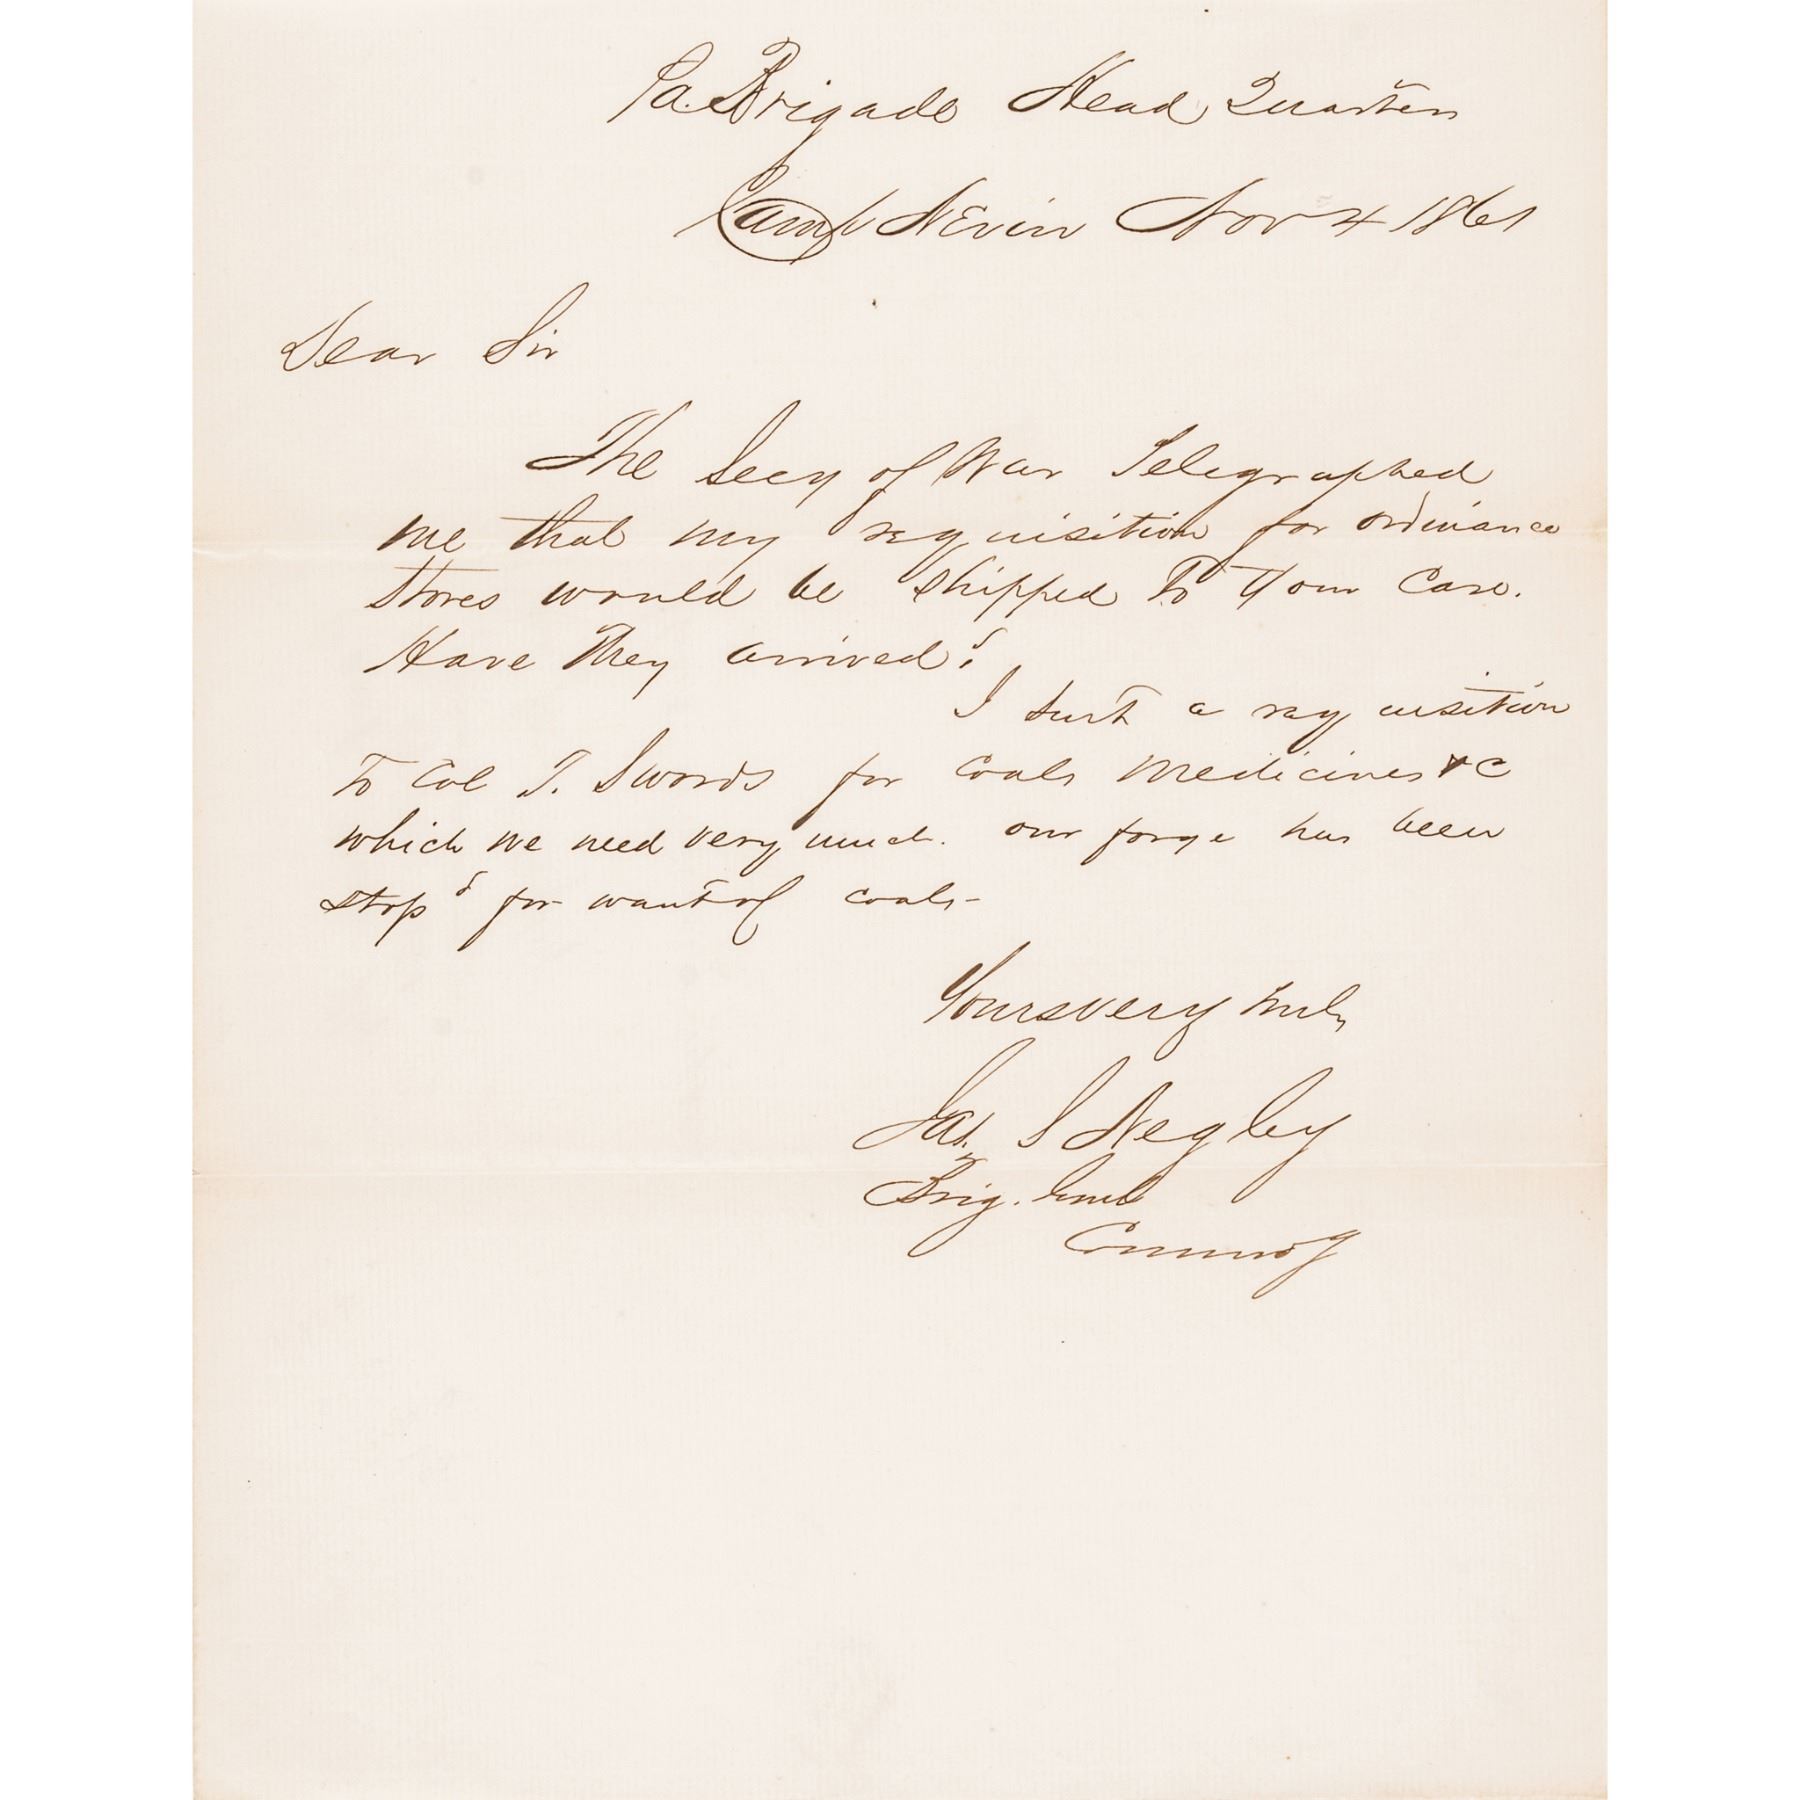 Pa. Brigade Head Quarters
Camp Nevin Nov 4 1861
Dear Sir
The Secy of War Telegraphed
me that my requisition for ordinance
stores would be shipped to your Care.
Have they arrived?
I sent a requisition
to Col T. Swords for coals medicines &c
which we need very much. our forge has been
stopd for want of coals-
Yours very truly
Jas. S Negley
Brig. Genl
Commdg